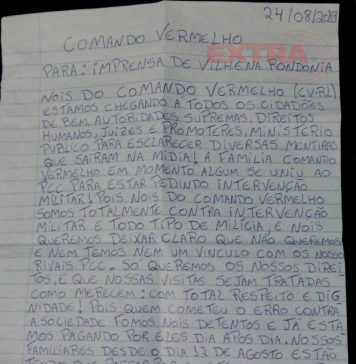 24/08/2019
COMANDO VERMELHO
EXTRA
PARA: IMPRENSA DE VILHENA RONDONIA
NOIS DO COMANDO VERMELHO (CV-RL)
ESTAMOS CHEGANDO A TODOS OS CIDADÕES
DE BEM, AUTORIDADES SUPREMAS, DIREITOS
HUMANOS, JUIZES E PROMOTERES, MINISTÉRIO
PUBLICO PARA ESCLARECER DIVERSAS MENTIRAS
QUE SAIRAM NA MIDIA! A FAMILIA COMANDO
VERMELHO EM MOMENTO ALGUM SE UNIU AO
PCC PARA ESTAR PEDINDO INTERVENÇÃO
MILITAR! POIS NOIS DO COMANDO VERMELHO
SOMOS TOTALMENTE CONTRA INTERVENÇÃO
MILITAR E TODO TIPO DE MILÍCIA, E NOIS
QUEREMOS DEIXAR CLARO QUE NÃO QUEREMOS
E NEM TEMOS NEM UM VINCULO COM OS NOSSOS
RIVAIS PCC. SO QUEREMOS OS NOSSOS DIREI
TOS, E QUE NOSSAS VISITAS SEJAM TRATADAS
COMO MERECEM: COM TOTAL RESPEITO E DIG
NIDADE! POIS QUEM COMETEU O ERRO CONTRA
A SOCIEDADE FOMOS NOIS DETENTOS E JÁ ESTA
MOS PAGANDO POR ELES DIA APÓS DIA. NOSSOS
FAMILIARES DESDE O DIA 12 DE AGOSTO ESTÃO